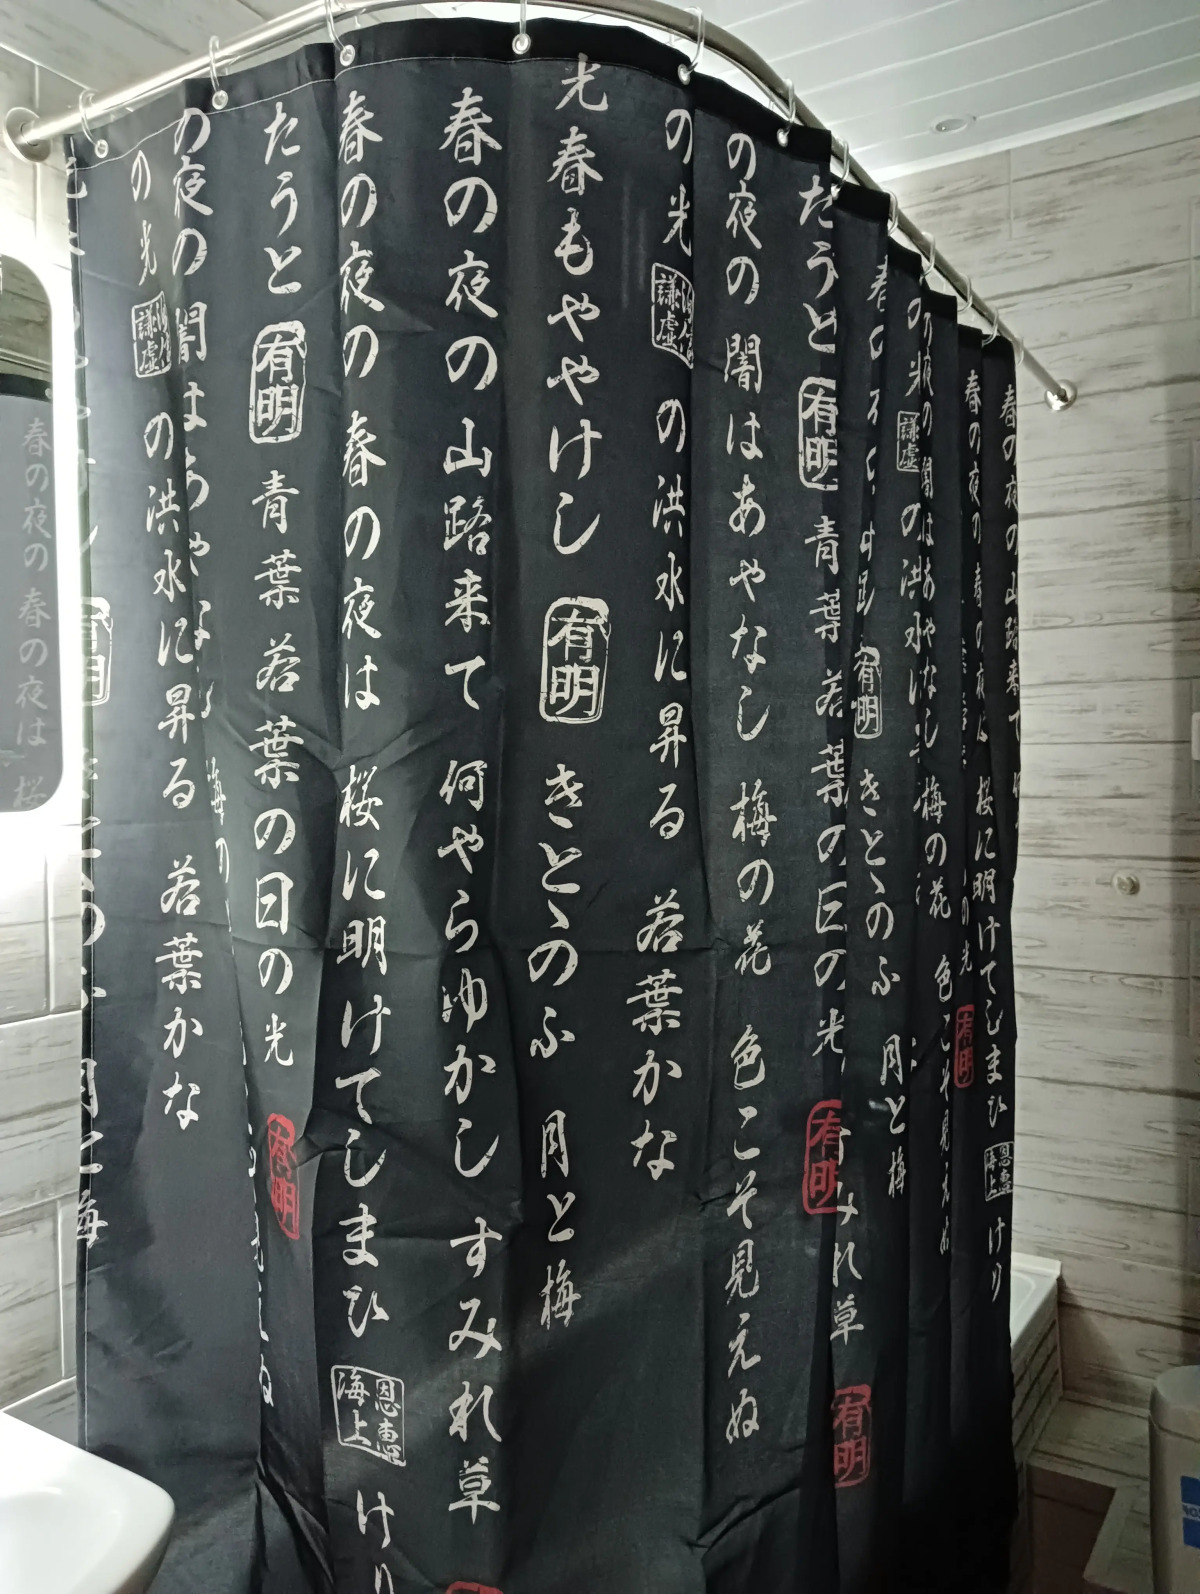 春の夜の山路来て
春の夜の 春の夜は 桜に明けてしまひ
恩恵
海上
けり
の光
有明
の夜の闇はあやなし 梅の花 色こそ見えぬ
の光
謙虚
の洪水に
有明
きとゝのふ 月と梅
みれ草
有明
たうと
有明
青葉若葉の日の光
有明
の夜の闇はあやなし 梅の花 色こそ見えぬ
の光
謙虚
の洪水に昇る 若葉かな
光春もややけし
有明
きとゝのふ 月と梅
春の夜の山路来て 何やらゆかし すみれ草
春の夜の 春の夜は 桜に明けてしまひ
恩恵
海上
けり
たうと
有明
青葉若葉の日の光
有明
の夜の闇はあやな
梅の
の光
謙虚
の洪水に昇る 若葉かな
有明
月と梅
春の夜の 春の夜は 桜